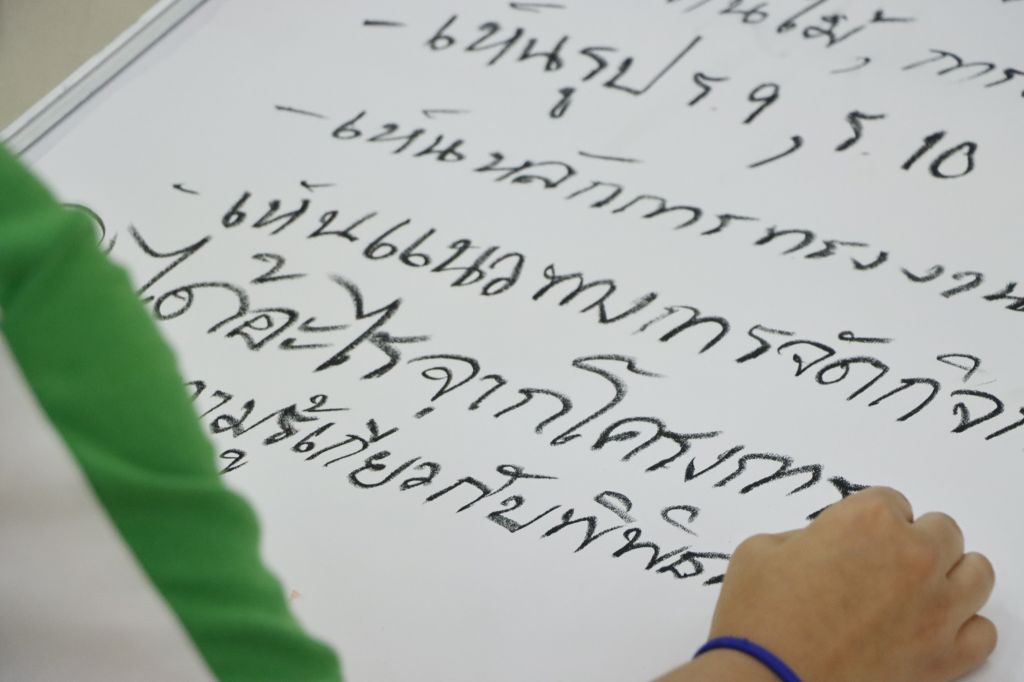 นไม้, การ
- เห็นรูป ร.9, ร.10
- เห็นหลักการทรงงาน
- เห็นแนวทางการจัดกิจ
ได้อะไรจากโครงการ
ความรู้เกี่ยวกับพิพิธ